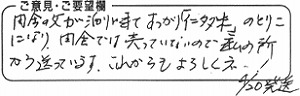 ご意見・ご要望欄
田舎の父が泊りに来てすっかり仁多米のとりこ
になり、田舎では売っていないので私の所
から送っています。これからもよろしくネ!
9/20発送